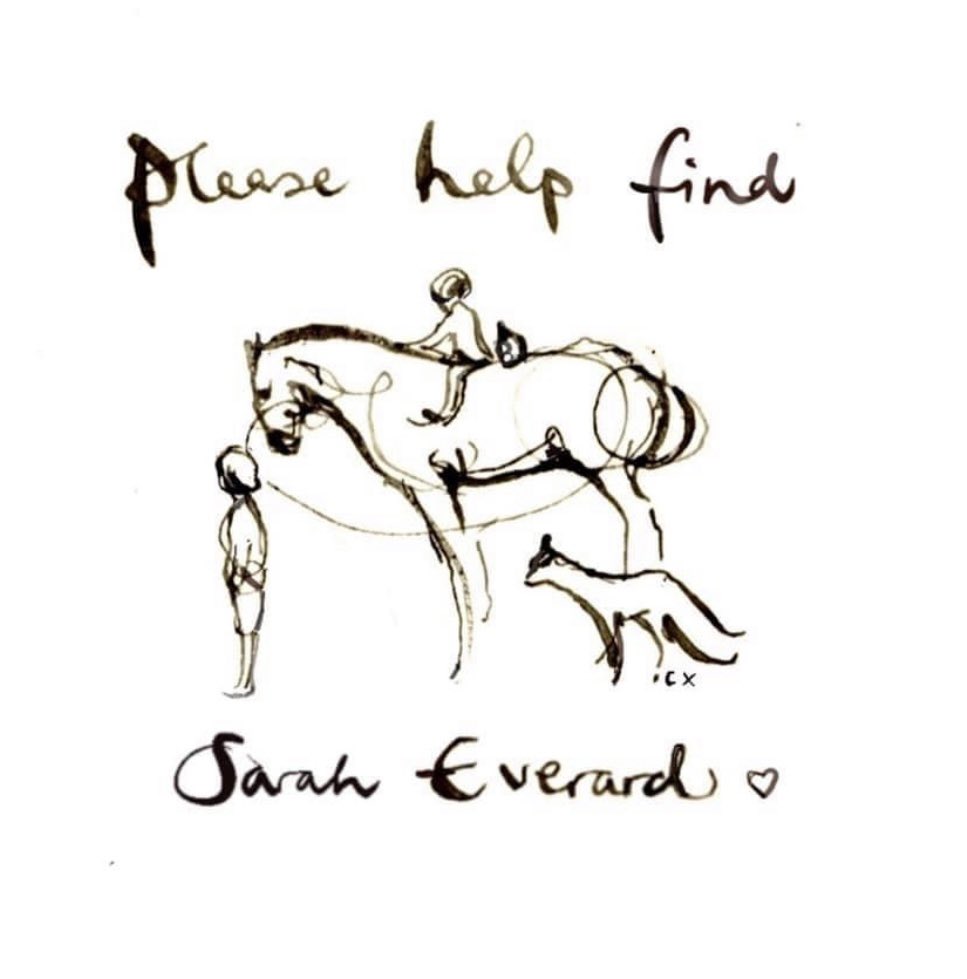 please help find
cx
Sarah Everard ♡